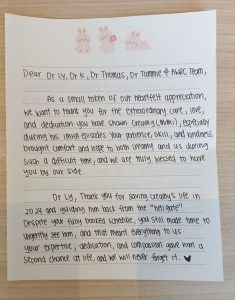 Dear Dr Ly, Dr K, Dr Thomas, Dr Tammie & AWRC Team,
As a small token of our heartfelt appreciation,
we want to thank you for the extraordinary care, love,
and dedication you have shown Creamy (Mimi), especially
during his IMHA episodes. Your patience, skill, and kindness
brought comfort and hope to both creamy and us during
such a difficult time, and we are truly blessed to have
you by our side.
Dr Ly, Thank you for saving creamy's life in
2024 and guiding him back from the "hell gate"
Despite your fully booked schedule, you still made time to
urgently see him, and that meant everything to us
your expertise, dedication, and compassion gave him a
second chance at life, and we will never forget it. ♥